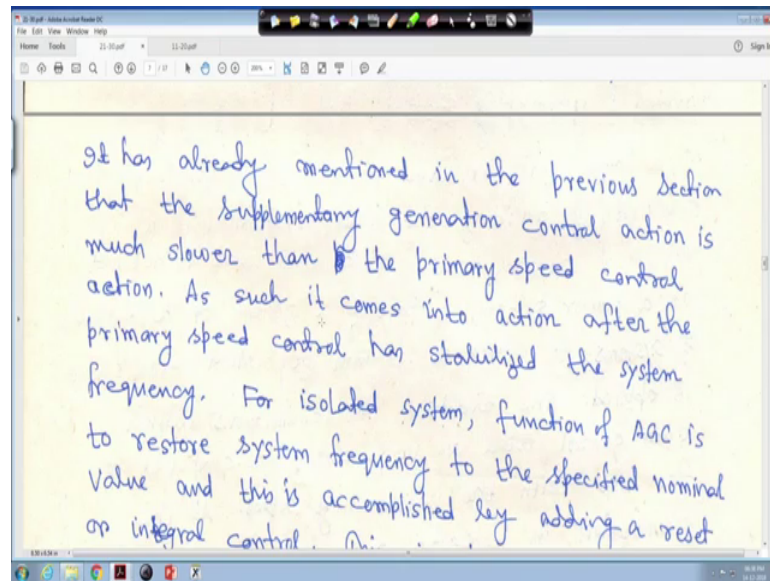 21-30.pdf - Adobe Acrobat Reader DC
File Edit View Window Help
Home Tools 21-30.pdf × 11-20.pdf Sign In
It has already mentioned in the previous section
that the supplementary generation control action is
much slower than the primary speed control
action. As such it comes into action after the
primary speed control has stabilized the system
frequency. For isolated system, function of AGC is
to restore system frequency to the specified nominal
value and this is accomplished by adding a reset
or integral control.